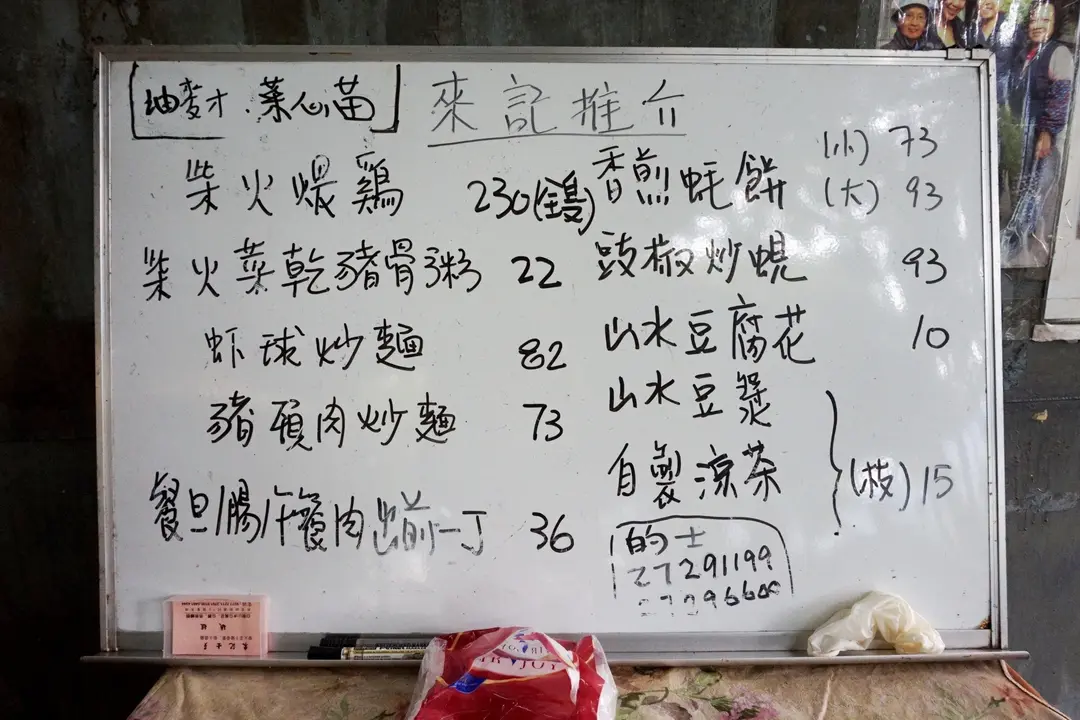 菜心苗
來記推介
柴火煨鷄 230(隻)
柴火菜乾豬骨粥 22
虾球炒麵 82
豬頸肉炒麵 73
餐旦/腸/午餐肉出前一丁 36
香煎蚝餅 (小) 73
(大) 93
豉椒炒蜆 93
山水豆腐花 10
山水豆漿
自製涼茶
(枝) 15
的士
27291199
27296600
來記士多